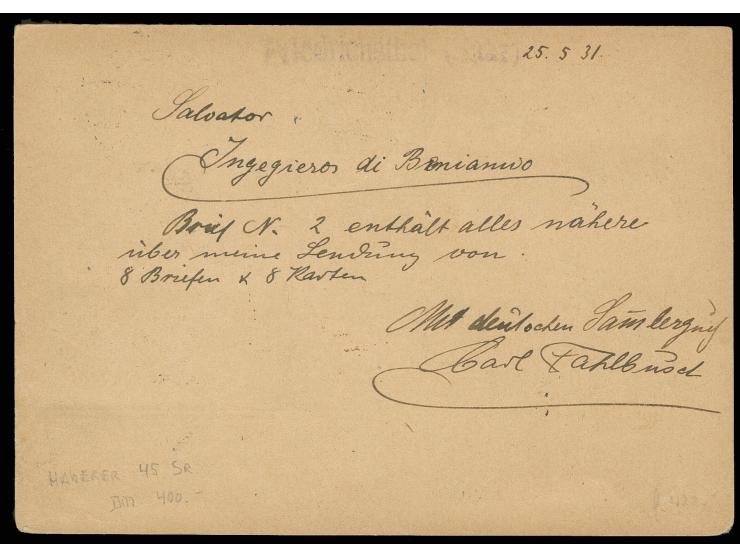 25. 5 31.
Salvator
Ingegieros di Bonianwo
Brief N. 2 enthält alles nähere
über meine Sendung von
8 Briefen & 8 Karten
Mit deutschen Samlergruß
Carl Fahlbusch
HABERER 45 SR
DM 400.-